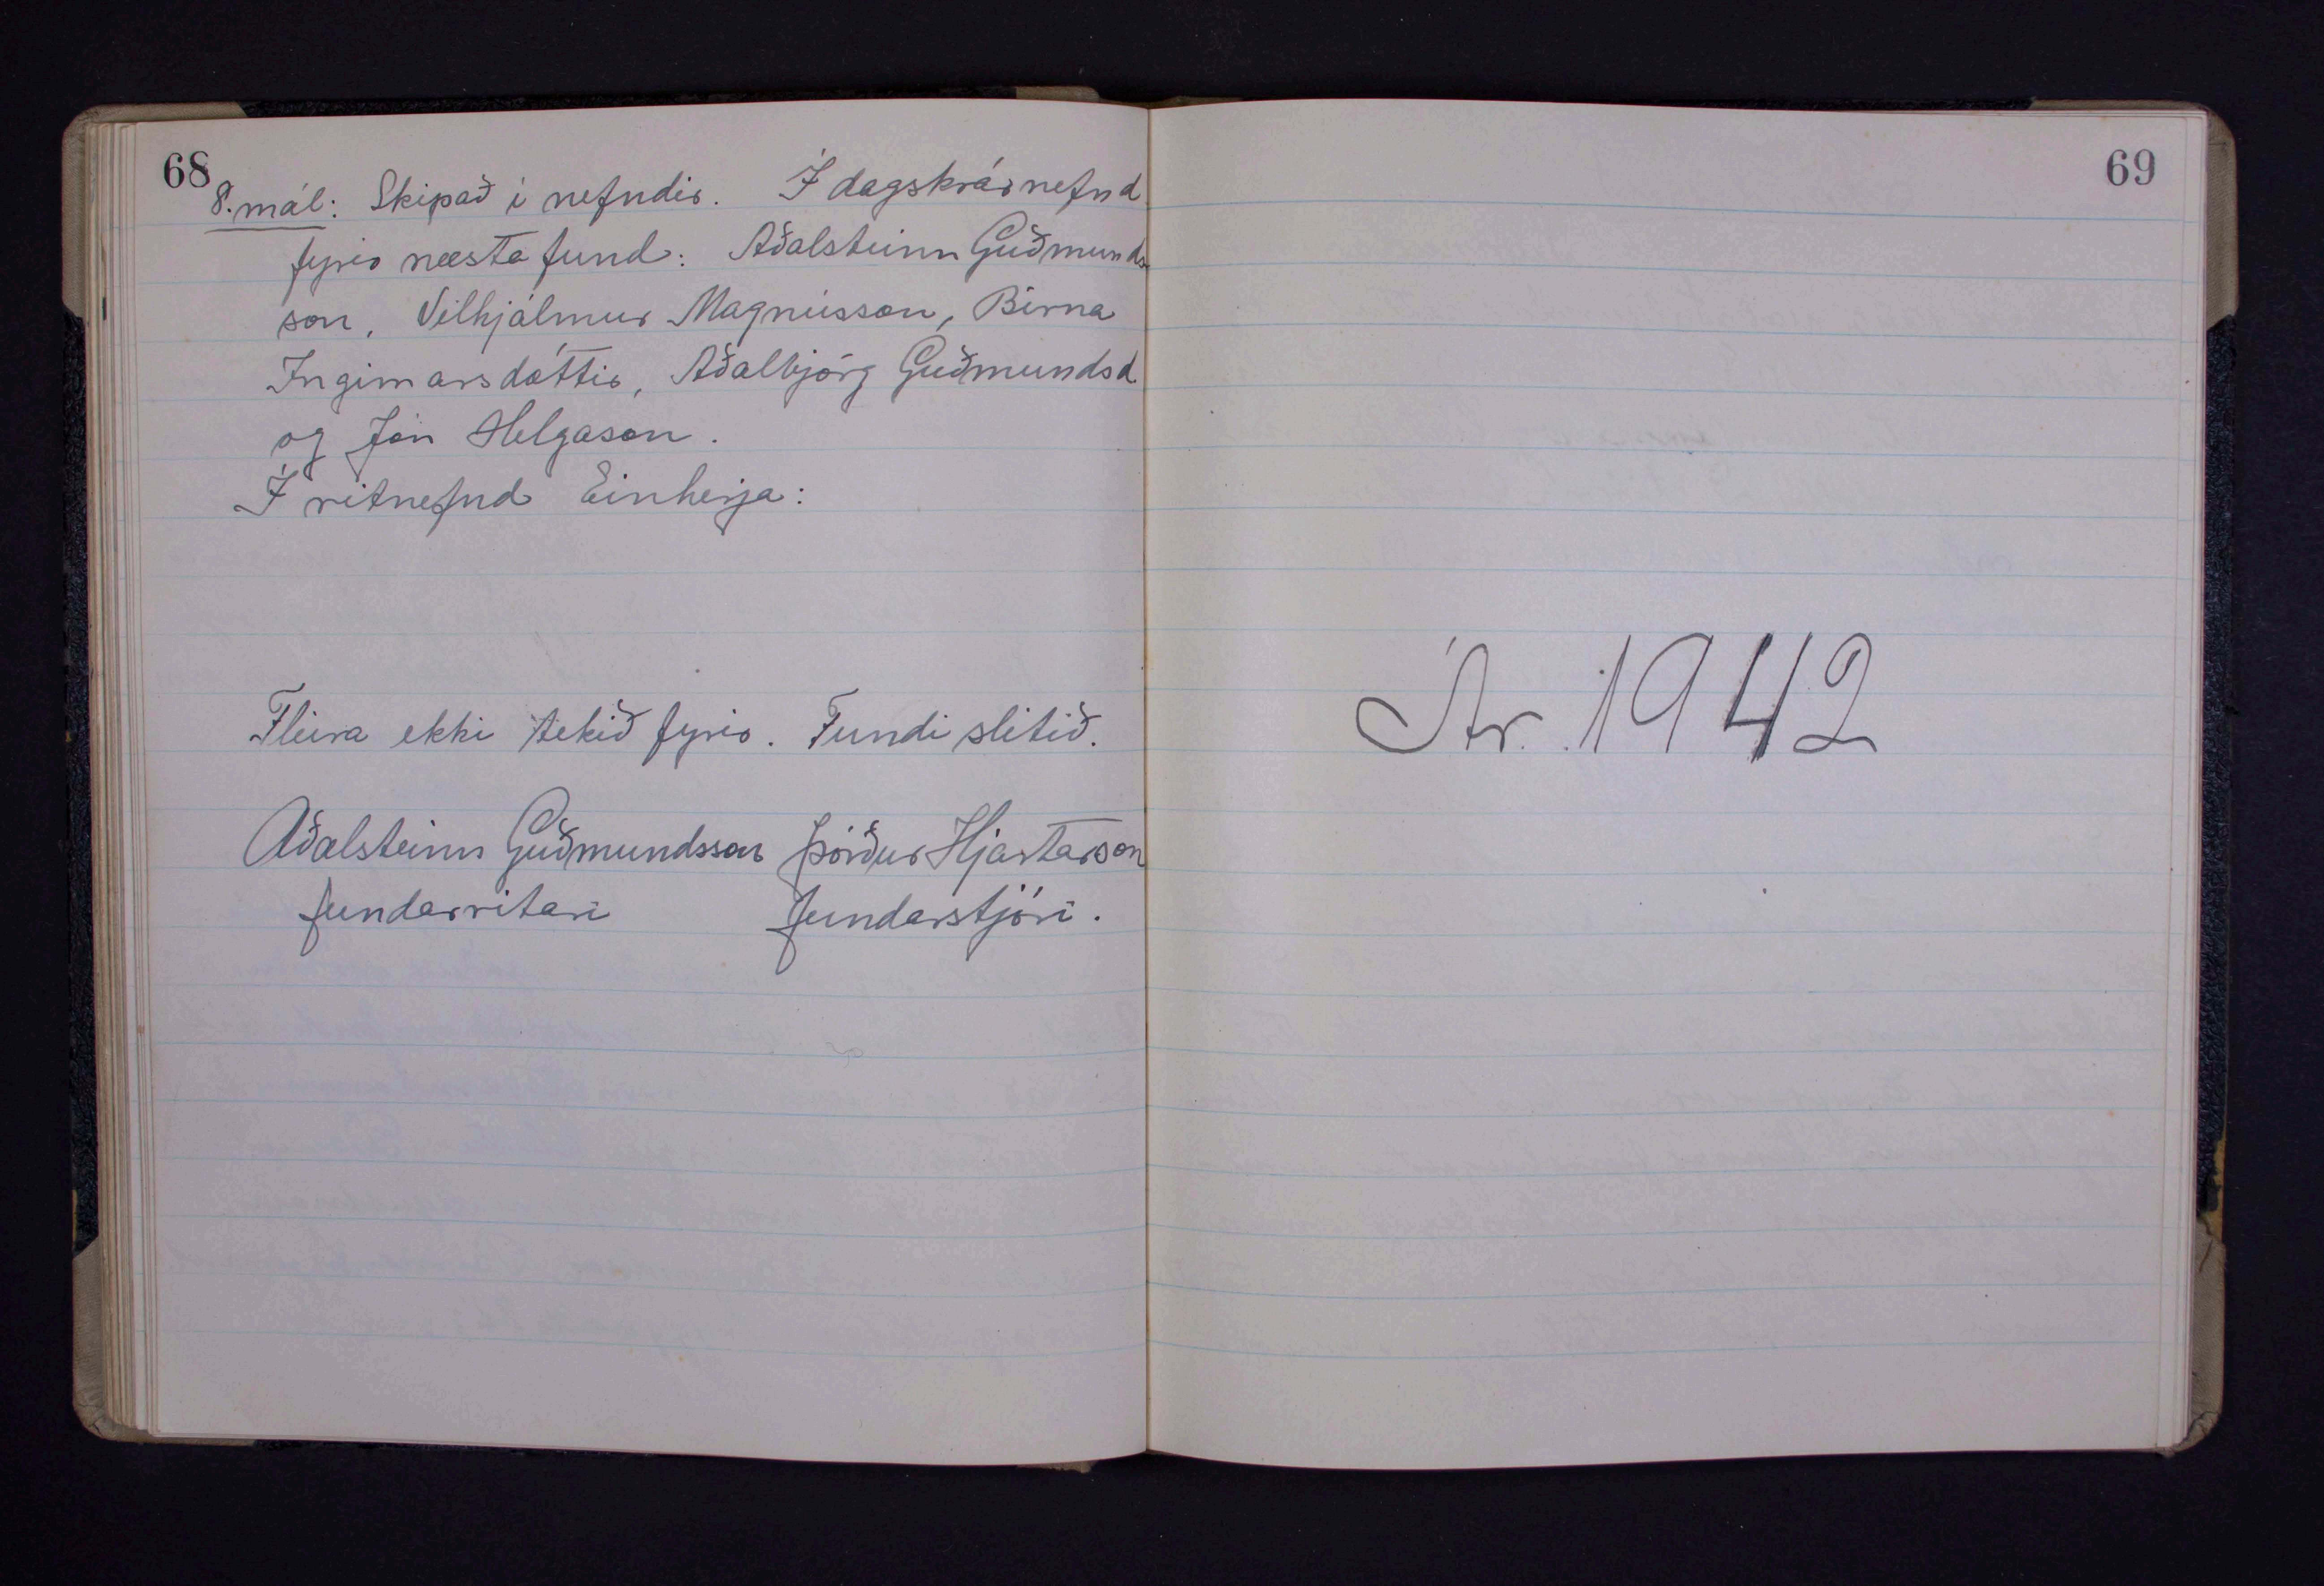 68
8. mál: Skipað í nefndir. Í dagskrárnefnd
fyrir næsta fund: Aðalsteinn Guðmunds
son, Vilhjálmur Magnússon, Birna
Ingimarsdóttir, Aðalbjörg Guðmundsd.
og Jón Helgason.
Í ritnefnd Einherja:
Fleira ekki tekið fyrir. Fundi slitið.
Aðalsteinn Guðmundsson Þórður Hjartarson
fundarritari fundarstjóri.
69
Ár 1942